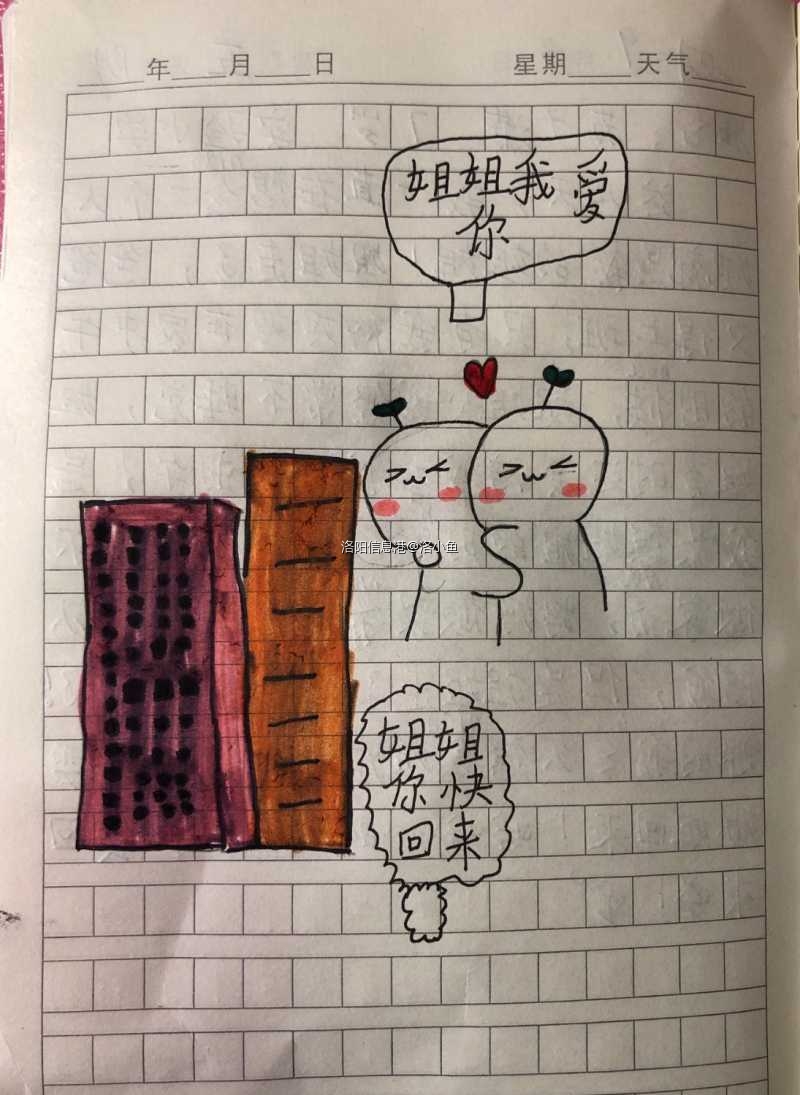 年 月 日 星期 天气
姐姐我爱
你
洛阳信息港@洛小鱼
姐姐
你快
回来